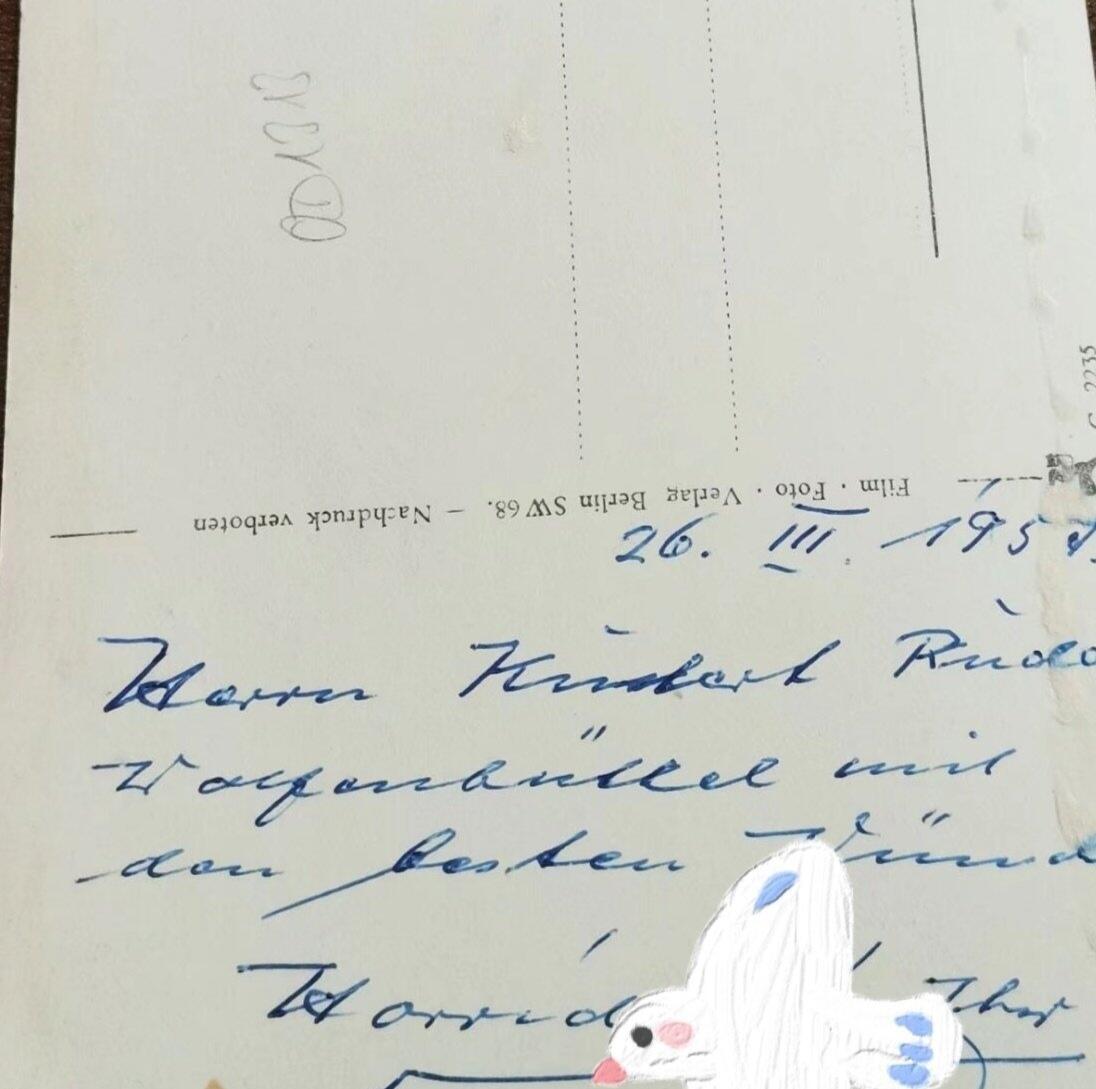 Film · Foto · Verlag Berlin SW 68. – Nachdruck verboten
2235
26. III. 195
Herrn Rudo
Wolfenbüttel mit
den besten Wünsc
Ihr